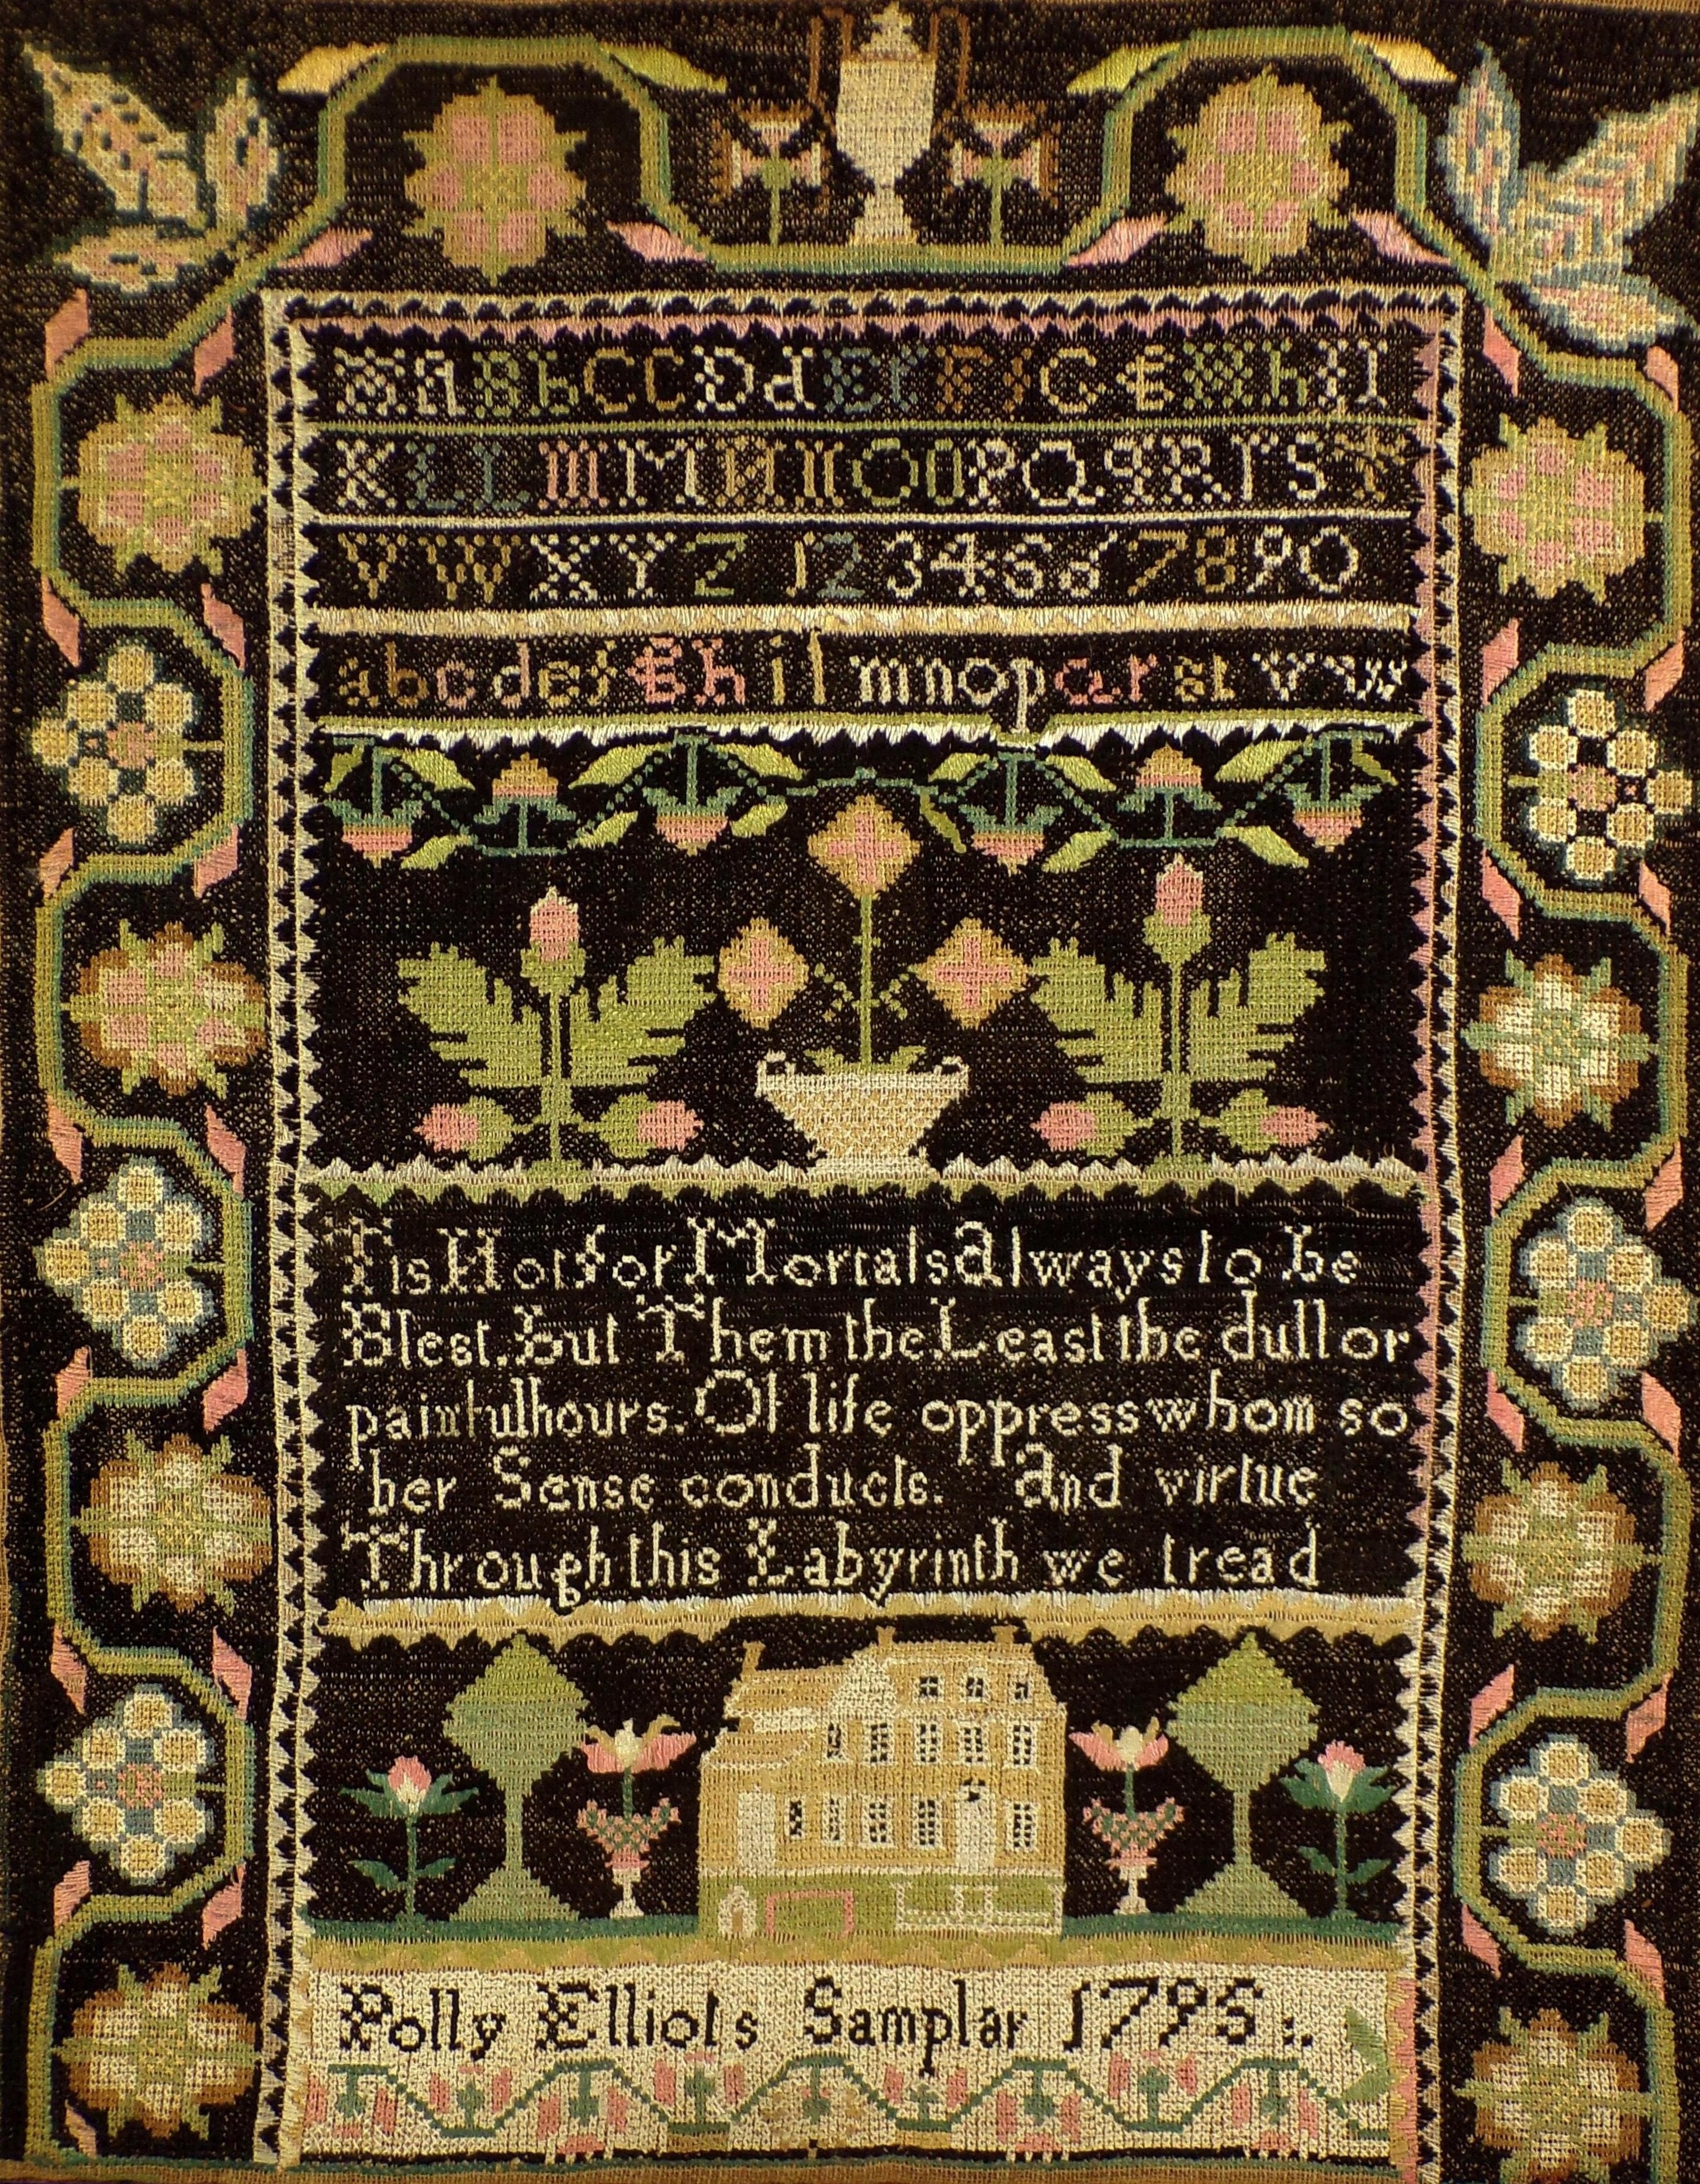 A A B b C C D d E f F f G g H h I I
K L L m M N n O O P Q q R r S T
V W X Y Z 1 2 3 4 5 6 7 8 9 0
a b c d e f g h i l m n o p q r s t v w
Tis Not for Mortals always to be
Blest. but Them the Least the dull or
painful hours. Of life oppress whom so
ber Sense conducts. and virtue
Through this Labyrinth we tread
Polly Elliots Samplar 1795